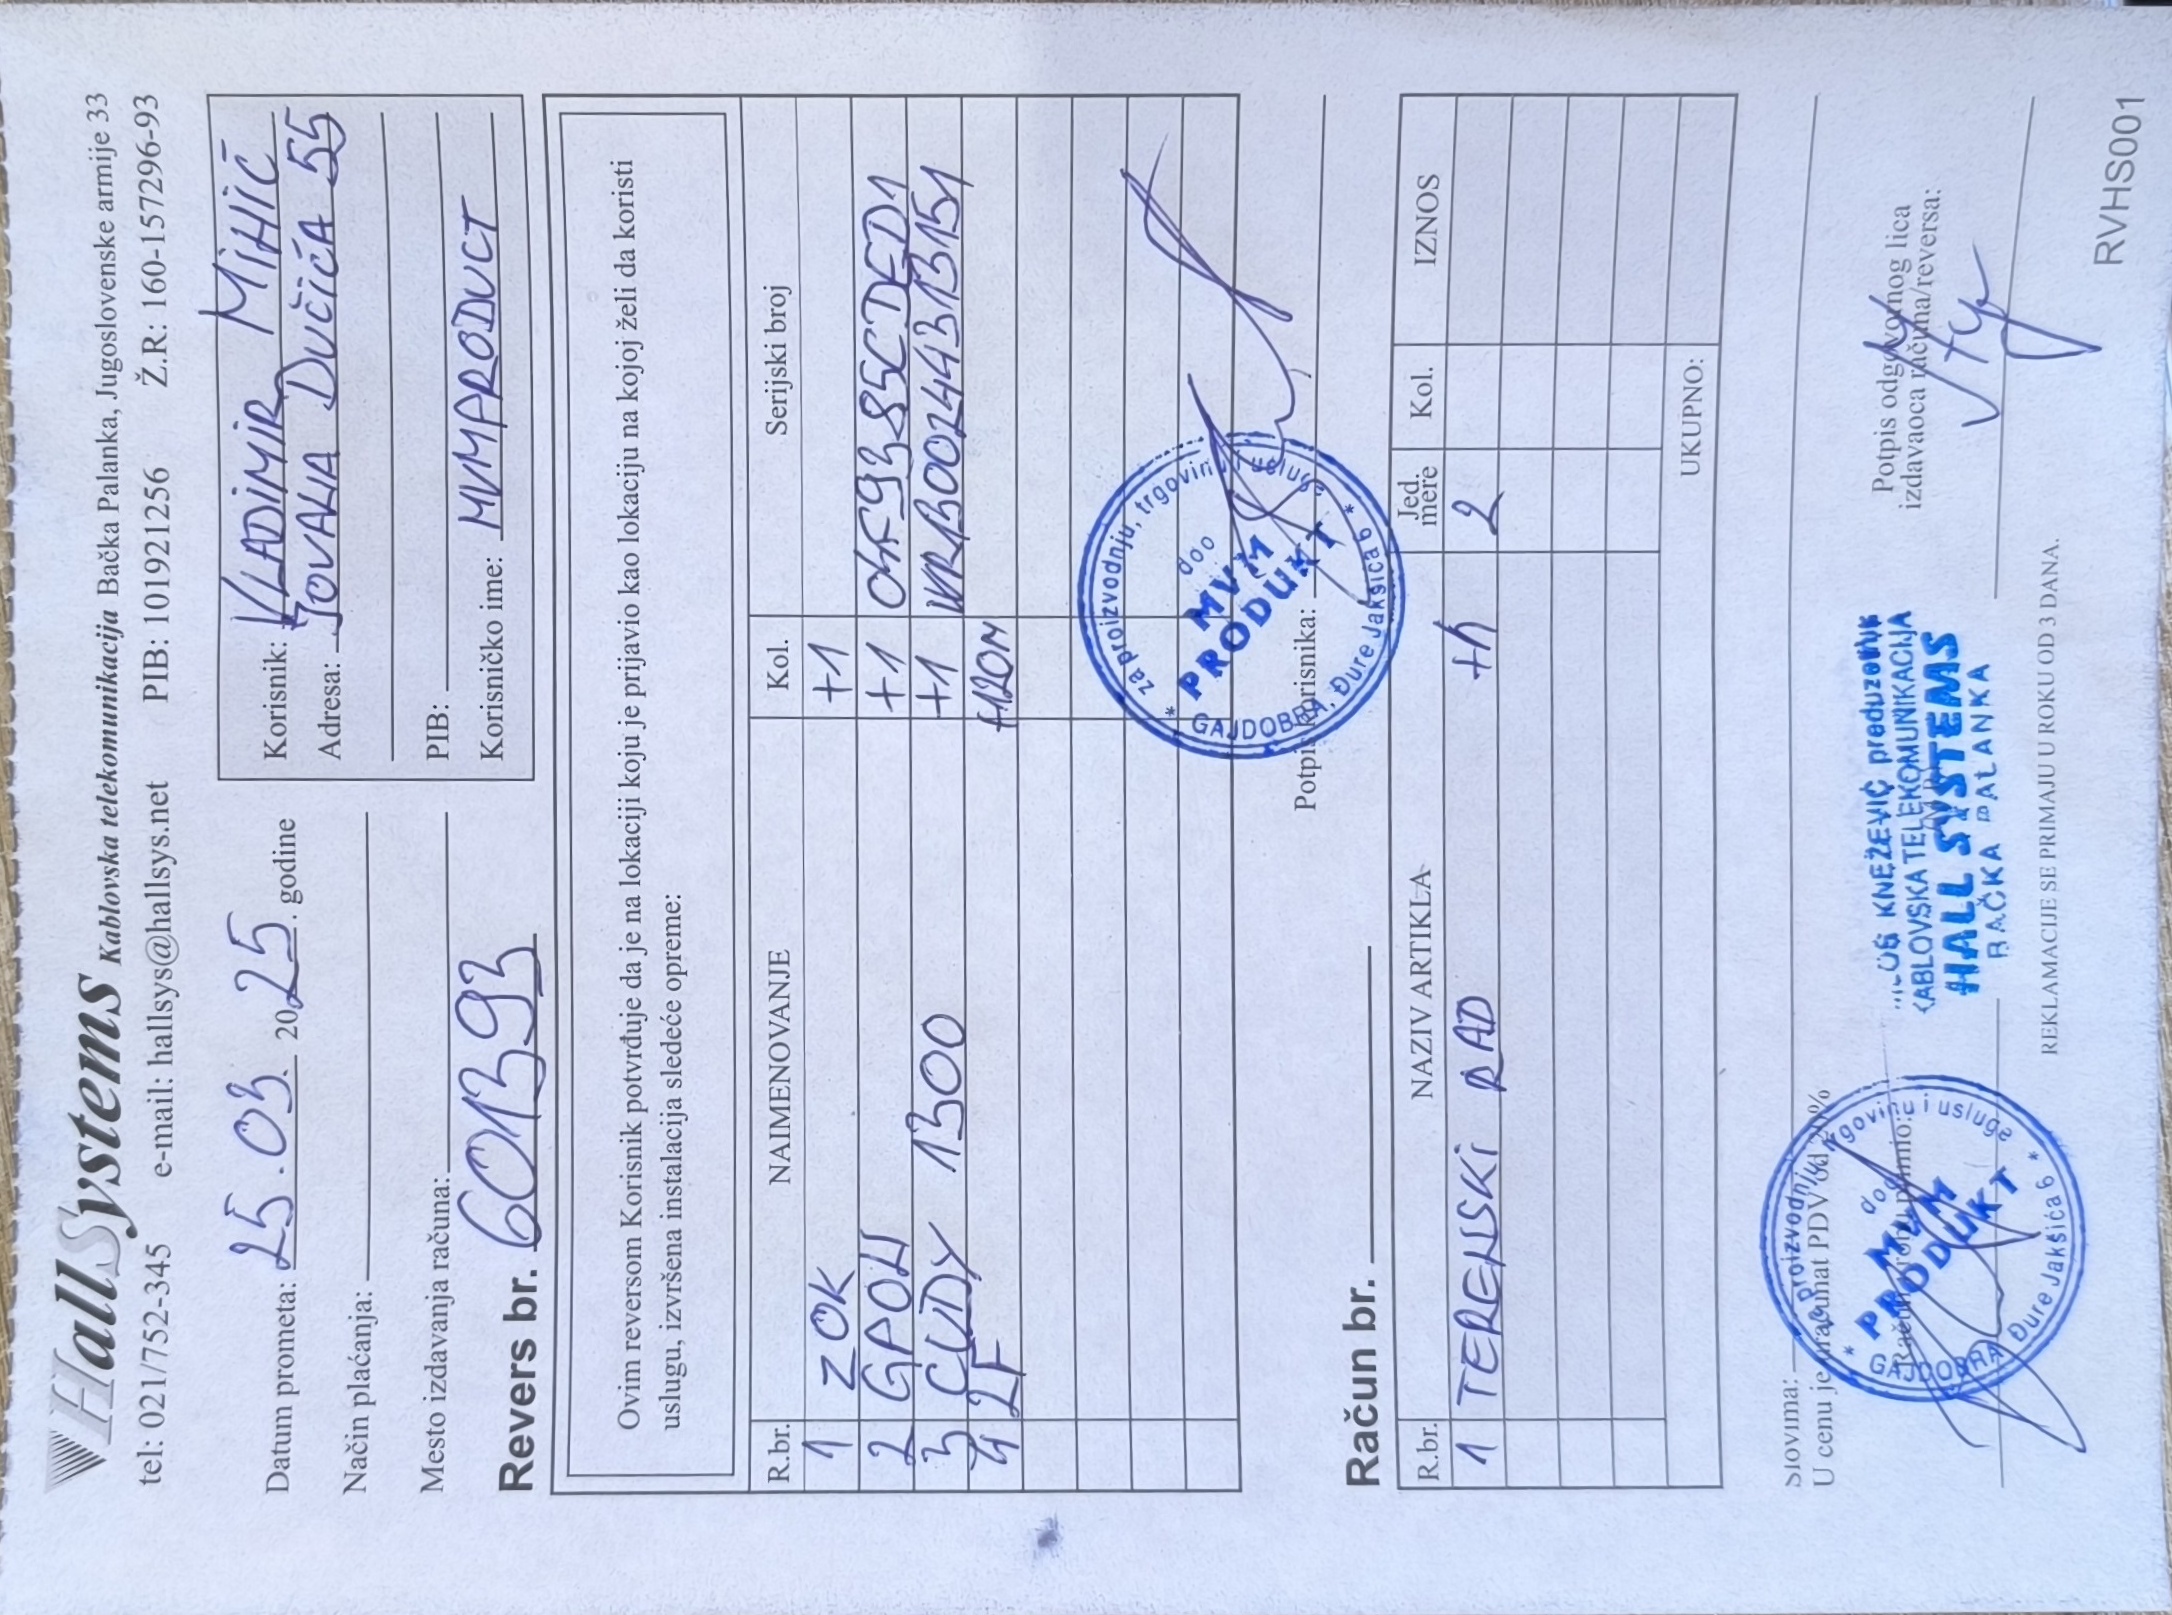 HallSystems Kablovska telekomunikacija Bačka Palanka, Jugoslovenske armije 33
tel: 021/752-345 e-mail: hallsys@hallsys.net PIB: 101921256 Ž.R: 160-157296-93
Datum prometa: 25.03. 2025. godine
Način plaćanja:
Mesto izdavanja računa:
Korisnik: VLADIMIR MIHIĆ
Adresa: JOVANA DUČIĆA 55
PIB:
Korisničko ime: MVMPRODUCT
Revers br. 601393
Ovim reversom Korisnik potvrđuje da je na lokaciji koju je prijavio kao lokaciju na kojoj želi da koristi
uslugu, izvršena instalacija sledeće opreme:
R.br. NAIMENOVANJE Kol. Serijski broj
1 ZOK +1
2 GPON +1
3 CUDY 1300 +1 WR1300244313151
4 2F +120M
Potpis korisnika:
za proizvodnju, trgovinu i usluge
doo
MVM
PRODUKT
* GAJDOBRA, Đure Jakšića 6 *
Račun br.
R.br. NAZIV ARTIKLA Jed. mere Kol. IZNOS
1 TERENSKI RAD +h 2
UKUPNO:
Slovima:
U cenu je uračunat PDV od %
Račun/robu primio:
za proizvodnju, trgovinu i usluge
doo
MVM
PRODUKT
* GAJDOBRA, Đure Jakšića 6 *
KNEŽEVIĆ preduzetnik
KABLOVSKA TELEKOMUNIKACIJA
HALL SYSTEMS
BAČKA PALANKA
Potpis odgovornog lica
izdavaoca računa/reversa:
REKLAMACIJE SE PRIMAJU U ROKU OD 3 DANA.
RVHS001